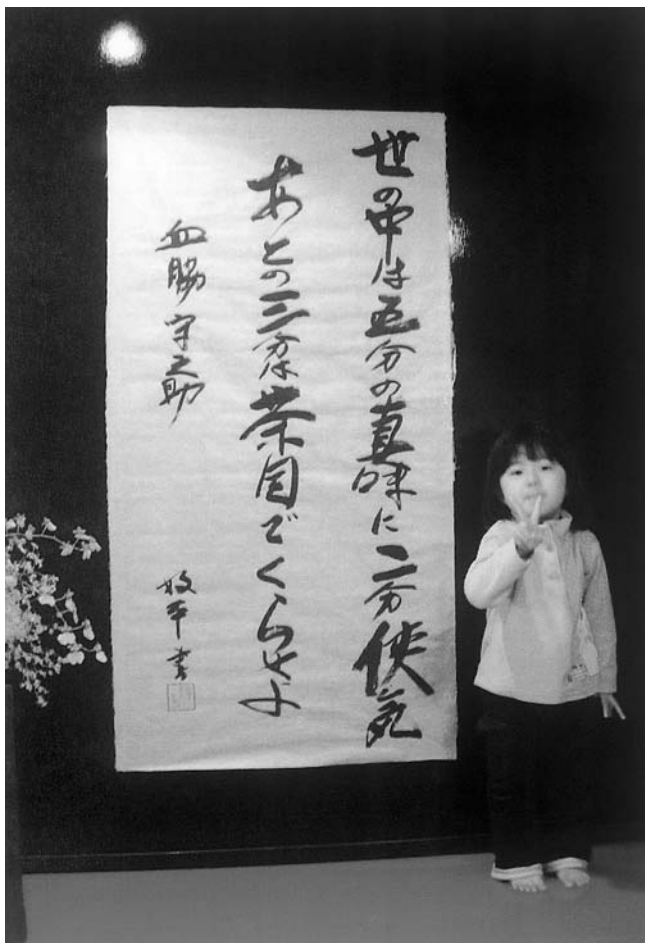 世の中は五分の真味に二分侠気
あとの三分は茶目でくらせよ
血脇守之助
敏平書